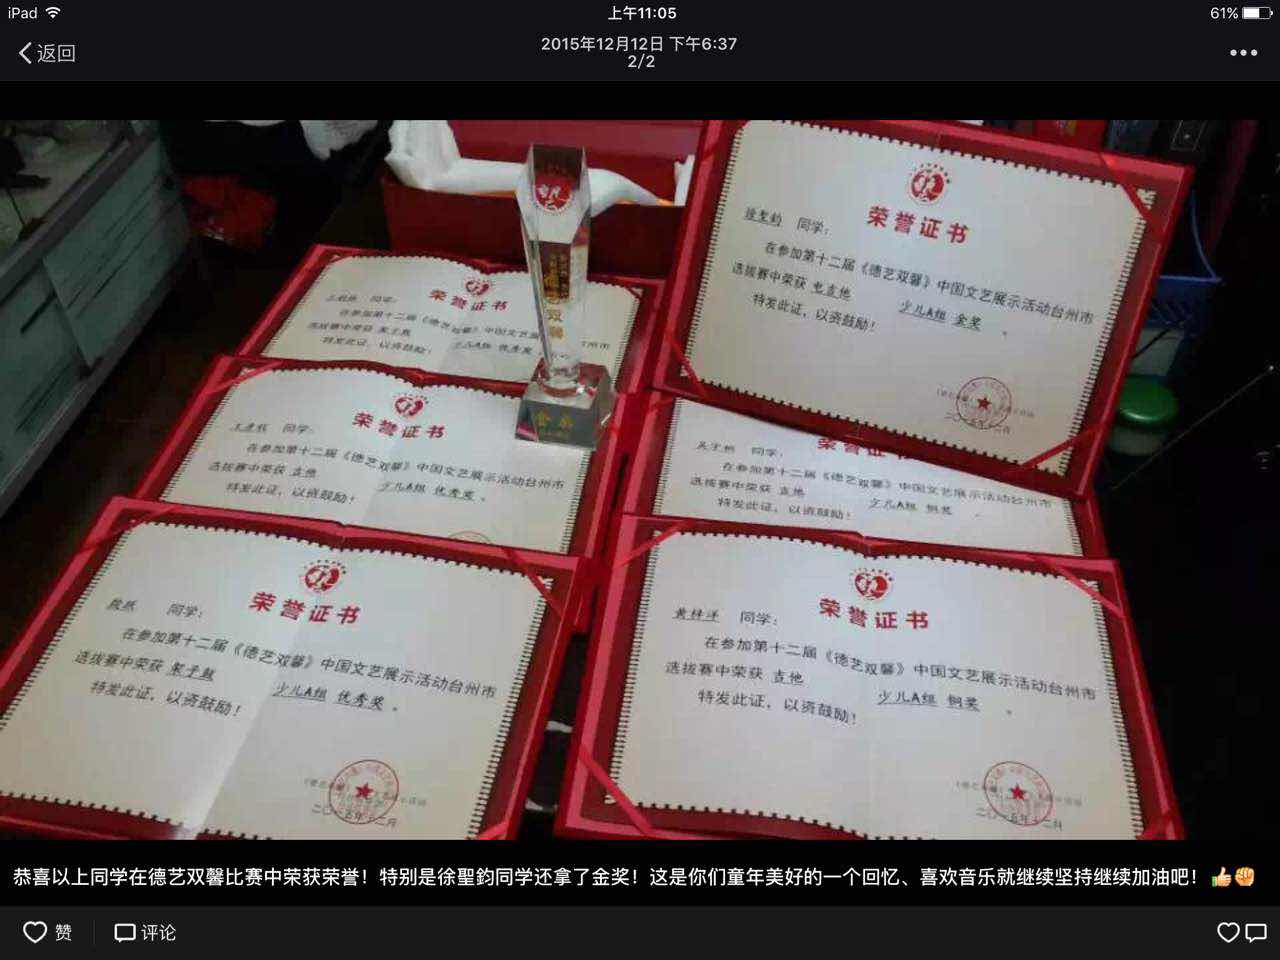 iPad
上午11:05
61%
返回
2015年12月12日 下午6:37
2/2
徐聖鈞 同学：
荣誉证书
在参加第十二届《德艺双馨》中国文艺展示活动台州市
选拔赛中荣获 电吉他 少儿A组 金奖 。
特发此证，以资鼓励！
同学：
荣誉证书
在参加第十二届《德艺双馨》中国文艺展
州市
选拔赛中荣获
少儿A组 优秀奖
特发此证，以资鼓励！
双馨
金奖
同学：
荣誉证书
在参加第十二届《德艺双馨》中国文艺展示活动台州市
选拔赛中荣获 吉他 少儿A组 优秀奖 。
特发此证，以资鼓励！
同学：
荣誉证书
在参加第十二届《德艺双馨》中国文艺展示活动台州市
选拔赛中荣获 吉他 少儿A组 铜奖
特发此证，以资鼓励！
同学：
荣誉证书
在参加第十二届《德艺双馨》中国文艺展示活动台州市
选拔赛中荣获 架子鼓 少儿A组 优秀奖 。
特发此证，以资鼓励！
二〇一五年十二月
黄梓洋 同学：
荣誉证书
在参加第十二届《德艺双馨》中国文艺展示活动台州市
选拔赛中荣获 吉他 少儿A组 铜奖 。
特发此证，以资鼓励！
二〇一五年十二月
恭喜以上同学在德艺双馨比赛中荣获荣誉！特别是徐聖鈞同学还拿了金奖！这是你们童年美好的一个回忆、喜欢音乐就继续坚持继续加油吧！👍✊
赞
评论